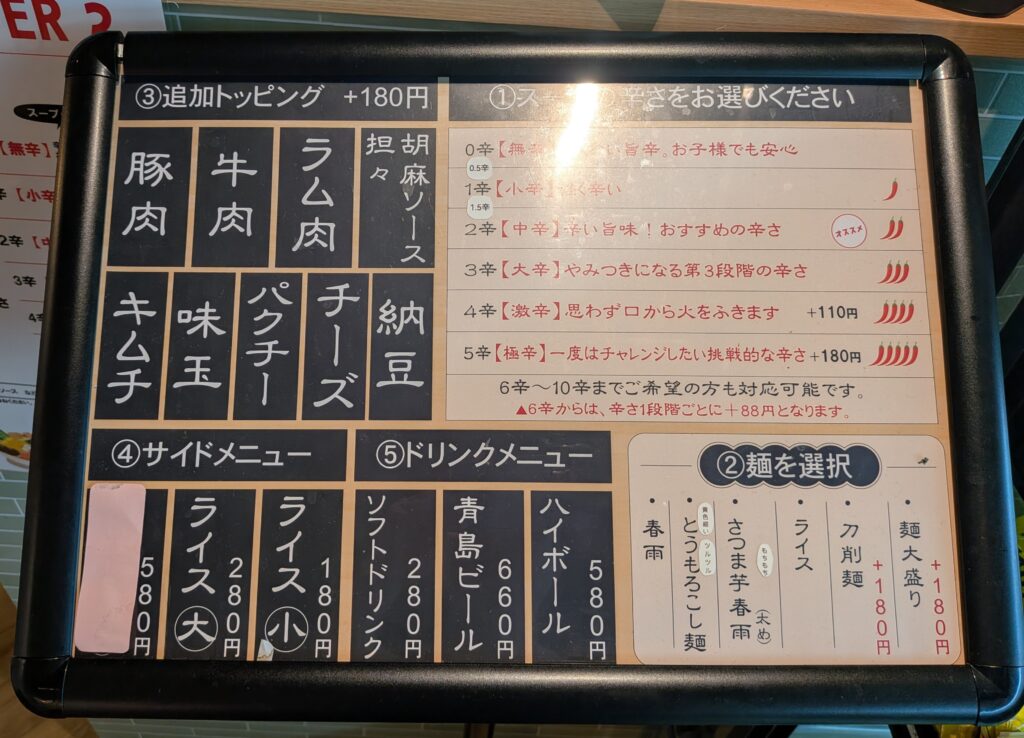 ER 3
スープ
【無辛】
【小辛
2辛【中
3辛
4辛
①スー の辛さをお選びください
0辛【無 旨辛。お子様でも安心
0.5辛
1辛【小辛】 辛い
1.5辛
2辛【中辛】辛い旨味!おすすめの辛さ
オススメ
3辛【大辛】やみつきになる第3段階の辛さ
4辛【激辛】思わず口から火をふきます +110円
5辛【極辛】一度はチャレンジしたい挑戦的な辛さ+180円
6辛~10辛までご希望の方も対応可能です。
▲6辛からは、辛さ1段階ごとに+88円となります。
②麺を選択
・麺大盛り +180円
・刀削麺 +180円
・ライス
・さつま芋春雨(太め)
もちもち
・とうもろこし麺
黄色細い
ツルツル
・春雨
③追加トッピング +180円
胡麻ソース
担々
ラム肉
牛肉
豚肉
納豆
チーズ
パクチー
味玉
キムチ
④サイドメニュー
ライス小 180円
ライス大 280円
580円
⑤ドリンクメニュー
ハイボール 580円
青島ビール 660円
ソフトドリンク 280円